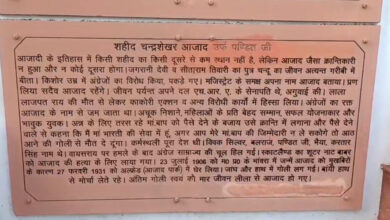 शहीद चन्द्रशेखर आजाद उर्फ पण्डित जी
आजादी के इतिहास में किसी शहीद का किसी दूसरे से कम स्थान नहीं है, लेकिन आजाद जैसा क्रान्तिकारी
न हुआ और न कोई दूसरा होगा। जगरानी देवी व सीताराम तिवारी का पुत्र चन्दू का जीवन अत्यन्त गरीबी में
बीता। किशोर उम्र में अंग्रेजों का विरोध किया, पकड़े गए। मजिस्ट्रेट के समक्ष अपना नाम आजाद बताया। प्रण
लिया सदैव आजाद रहेंगे। जीवन पर्यन्त अपने दल एच.आर. ए. के सेनापति थे, अगुवाई की। लाला
लाजपत राय की मौत से लेकर काकोरी एक्शन व अन्य विरोधी कार्यों में हिस्सा लिया। अंग्रेजों का रक्त
आजाद के नाम से जम जाता था। अचूक निशाने महिलाओं के प्रति बेहद सम्मान, सफल योजनाकार और
भावुक युवक। अन्न के लिए तरस रहे मां-बाप को पैसे देने के बजाय उसे क्रान्ति में लगाना और पैसे देने
वाले से कहना कि मैं मां भारती की सेवा में हूं, अगर आप मेरे मां-बाप की जिम्मेदारी न ले सकोगे तो आठ
आने की गोली से मौत दे दूगा। कर्मस्थली पूरा देश थी। क्विक सिल्वर, बलराज, पण्डित जी, भैया, करतार
सिंह नाम थे। वायसराय पर हमले के बाद अंग्रेज साम्राज्य की चूल हिल गई। स्काटलैण्ड का शूटर नाट बाबर
को आजाद की हत्या के लिए लाया गया। 23 जुलाई 1906 को म0 प्र0 के भांवरा में जन्में आजाद को मुखबिरी
के कारण 27 फरवरी 1931 को अल्फ्रेड (आजाद पार्क) में घेर लिया। जांघ और हाथ में गोली लग गई। बायीं हाथ
से मोर्चा लेते रहे। अंतिम गोली स्वयं को मार जीवन लीला से आजाद हो गए।